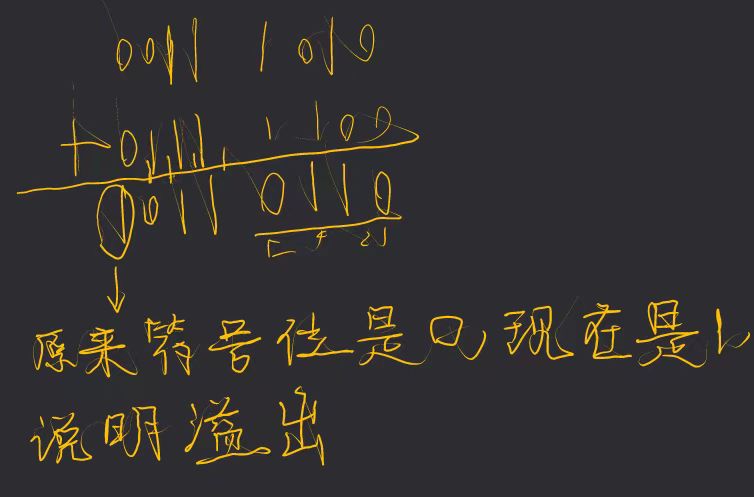 0011 1010
+ 0111 1100
1011 0110
4 2 1
原来符号位是0,现在是1,
说明溢出